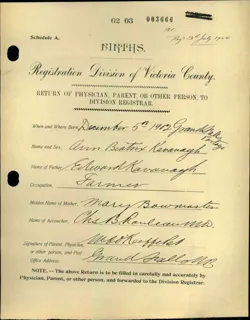 62 63 003666
Schedule A.
BIRTHS.
Registration Division of Victoria County.
RETURN OF PHYSICIAN, PARENT, OR OTHER PERSON, TO
DIVISION REGISTRAR.
When and Where Born, December 5th 1912 Grand Falls
Name and Sex, Ann Beatrix Kavanagh
Name of Father, Edward Kavanagh
Occupation, Farmer
Maiden Name of Mother, Mary Bowmaster
Name of Accoucher, Chs. B. Rouleau M.D.
Signature of Parent, Physician,
or other person, and Post
Office Address, Grand Falls N.B.
NOTE.—The above Return is to be filled in carefully and accurately by
Physician, Parent, or other person, and forwarded to the Division Registrar.